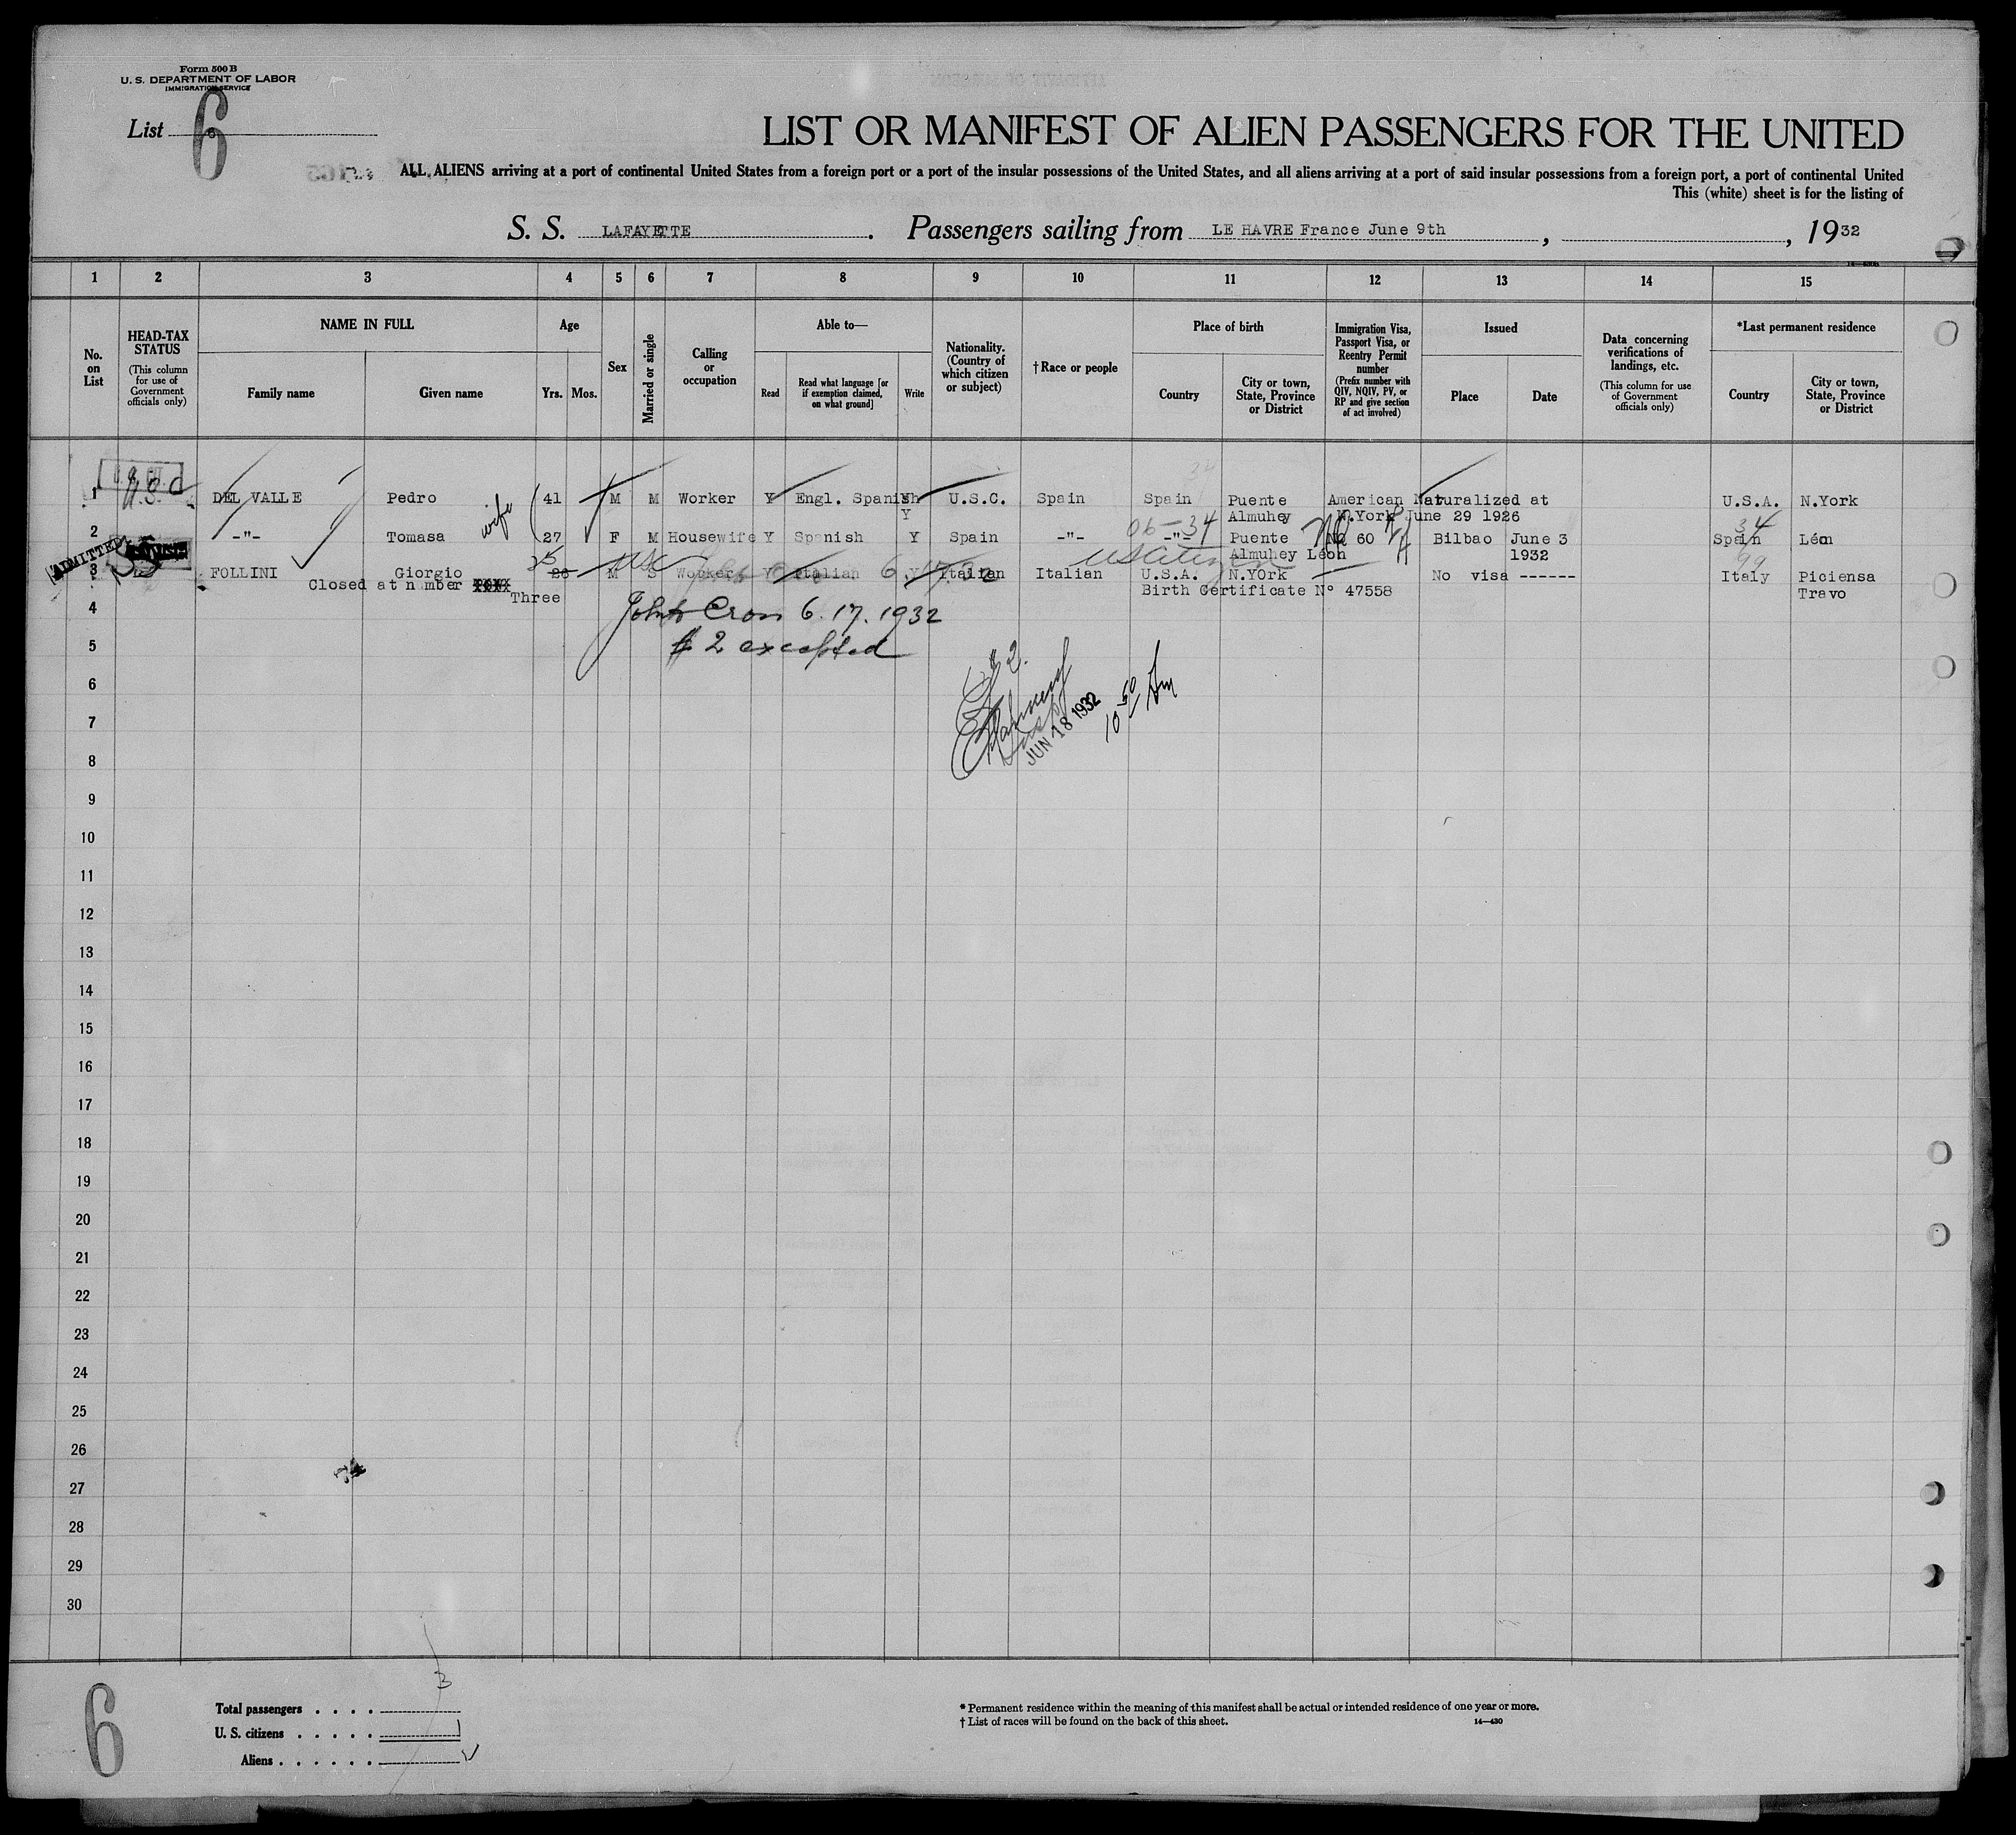 Form 500 B
U. S. DEPARTMENT OF LABOR
IMMIGRATION SERVICE
List 6
6
LIST OR MANIFEST OF ALIEN PASSENGERS FOR THE UNITED
ALL ALIENS arriving at a port of continental United States from a foreign port or a port of the insular possessions of the United States, and all aliens arriving at a port of said insular possessions from a foreign port, a port of continental United
This (white) sheet is for the listing of
S. S. LAFAYETTE. Passengers sailing from LE HAVRE France June 9th, , 1932
1 2 3 4 5 6 7 8 9 10 11 12 13 14 15
No. on List
HEAD-TAX STATUS (This column for use of Government officials only)
NAME IN FULL Family name Given name
Age Yrs. Mos.
Sex
Married or single
Calling or occupation
Able to— Read Read what language [or if exemption claimed, on what ground] Write
Nationality. (Country of which citizen or subject)
†Race or people
Place of birth Country City or town, State, Province or District
Immigration Visa, Passport Visa, or Reentry Permit number (Prefix number with QIV, NQIV, PV, or RP and give section of act involved)
Issued Place Date
Data concerning verifications of landings, etc. (This column for use of Government officials only)
*Last permanent residence Country City or town, State, Province or District
1 U.S.C DEL VALLE Pedro 41 M M Worker Y Engl. Spanish Y U.S.C. Spain Spain Puente Almuhey American Naturalized at N.York June 29 1926 U.S.A. N.York
2 ADMITTED -"- Tomasa wife 27 F M Housewife Y Spanish Y Spain -"- -"- 06-34 Puente Almuhey Léon NQ 60 Bilbao June 3 1932 34 Spain Léon
3 FOLLINI Giorgio 25 26 M S USC Worker Y Italian Y Italian Italian US Citizen U.S.A. N.York No visa ------ 99 Italy Piciensa Travo
Closed at number Three
Birth Certificate N° 47558
4
John Cron 6.17.1932
5
# 2 excepted
6
# 2.
7
Insp
JUN 18 1932
10 50 Am
8
9
10
11
12
13
14
15
16
17
18
19
20
21
22
23
24
25
26
27
28
29
30
6
Total passengers . . . . 3
U. S. citizens . . . . . 1
Aliens . . . . . .
* Permanent residence within the meaning of this manifest shall be actual or intended residence of one year or more.
† List of races will be found on the back of this sheet.
14—430